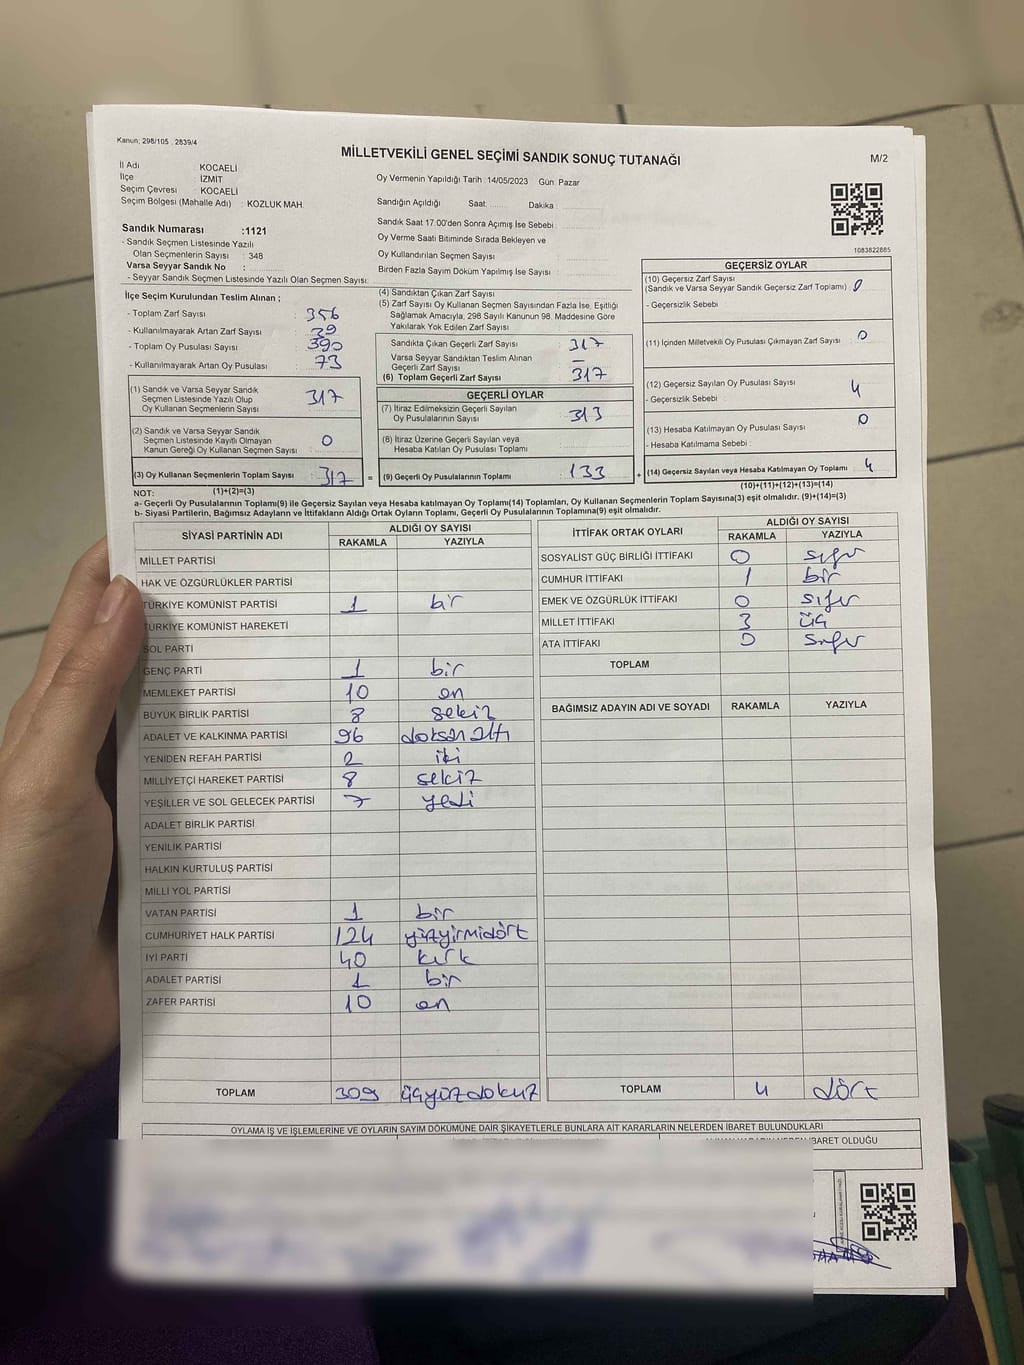 Kanun; 298/105 , 2839/4
MİLLETVEKİLİ GENEL SEÇİMİ SANDIK SONUÇ TUTANAĞI
M/2
İl Adı KOCAELİ
İlçe İZMİT
Seçim Çevresi : KOCAELİ
Seçim Bölgesi (Mahalle Adı) : KOZLUK MAH.
Sandık Numarası :1121
- Sandık Seçmen Listesinde Yazılı
Olan Seçmenlerin Sayısı : 348
Varsa Seyyar Sandık No :
- Seyyar Sandık Seçmen Listesinde Yazılı Olan Seçmen Sayısı:
Oy Vermenin Yapıldığı Tarih :14/05/2023 Gün: Pazar
Sandığın Açıldığı Saat: Dakika :
Sandık Saat 17.00'den Sonra Açımış İse Sebebi :
Oy Verme Saati Bitiminde Sırada Bekleyen ve
Oy Kullandırılan Seçmen Sayısı :
Birden Fazla Sayım Döküm Yapılmış İse Sayısı :
1083822885
İlçe Seçim Kurulundan Teslim Alınan ;
- Toplam Zarf Sayısı : 356
- Kullanılmayarak Artan Zarf Sayısı : 39
- Toplam Oy Pusulası Sayısı : 390
- Kullanılmayarak Artan Oy Pusulası : 73
(1) Sandık ve Varsa Seyyar Sandık
Seçmen Listesinde Yazılı Olup
Oy Kullanan Seçmenlerin Sayısı : 317
(2) Sandık ve Varsa Seyyar Sandık
Seçmen Listesinde Kayıtlı Olmayan
Kanun Gereği Oy Kullanan Seçmen Sayısı : 0
(3) Oy Kullanan Seçmenlerin Toplam Sayısı : 317 =
(1)+(2)=(3)
(4) Sandıktan Çıkan Zarf Sayısı
(5) Zarf Sayısı Oy Kullanan Seçmen Sayısından Fazla İse, Eşitliği
Sağlamak Amacıyla, 298 Sayılı Kanunun 98. Maddesine Göre
Yakılarak Yok Edilen Zarf Sayısı :
Sandıkta Çıkan Geçerli Zarf Sayısı : 317
Varsa Seyyar Sandıktan Teslim Alınan
Geçerli Zarf Sayısı : —
(6) Toplam Geçerli Zarf Sayısı : 317
GEÇERLİ OYLAR
(7) İtiraz Edilmeksizin Geçerli Sayılan
Oy Pusulalarının Sayısı : 313
(8) İtiraz Üzerine Geçerli Sayılan veya
Hesaba Katılan Oy Pusulası Toplamı :
(9) Geçerli Oy Pusulalarının Toplamı : 133 +
GEÇERSİZ OYLAR
(10) Geçersiz Zarf Sayısı
(Sandık ve Varsa Seyyar Sandık Geçersiz Zarf Toplamı) : 0
- Geçersizlik Sebebi :
(11) İçinden Milletvekili Oy Pusulası Çıkmayan Zarf Sayısı : 0
(12) Geçersiz Sayılan Oy Pusulası Sayısı : 4
- Geçersizlik Sebebi :
(13) Hesaba Katılmayan Oy Pusulası Sayısı : 0
- Hesaba Katılmama Sebebi :
(14) Geçersiz Sayılan veya Hesaba Katılmayan Oy Toplamı : 4
(10)+(11)+(12)+(13)=(14)
NOT:
a- Geçerli Oy Pusulalarının Toplamı(9) ile Geçersiz Sayılan veya Hesaba katılmayan Oy Toplamı(14) Toplamları, Oy Kullanan Seçmenlerin Toplam Sayısına(3) eşit olmalıdır. (9)+(14)=(3)
b- Siyasi Partilerin, Bağımsız Adayların ve İttifakların Aldığı Ortak Oyların Toplamı, Geçerli Oy Pusulalarının Toplamına(9) eşit olmalıdır.
SİYASİ PARTİNİN ADI ALDIĞI OY SAYISI
RAKAMLA YAZIYLA
MİLLET PARTİSİ
HAK VE ÖZGÜRLÜKLER PARTİSİ
TÜRKİYE KOMÜNİST PARTİSİ 1 bir
TÜRKİYE KOMÜNİST HAREKETİ
SOL PARTİ
GENÇ PARTİ 1 bir
MEMLEKET PARTİSİ 10 on
BÜYÜK BİRLİK PARTİSİ 8 sekiz
ADALET VE KALKINMA PARTİSİ 96 doksan altı
YENİDEN REFAH PARTİSİ 2 iki
MİLLİYETÇİ HAREKET PARTİSİ 8 sekiz
YEŞİLLER VE SOL GELECEK PARTİSİ 7 yedi
ADALET BİRLİK PARTİSİ
YENİLİK PARTİSİ
HALKIN KURTULUŞ PARTİSİ
MİLLİ YOL PARTİSİ
VATAN PARTİSİ 1 bir
CUMHURİYET HALK PARTİSİ 124 yüzyirmidört
İYİ PARTİ 40 kırk
ADALET PARTİSİ 1 bir
ZAFER PARTİSİ 10 on
TOPLAM 309 üçyüzdokuz
İTTİFAK ORTAK OYLARI ALDIĞI OY SAYISI
RAKAMLA YAZIYLA
SOSYALİST GÜÇ BİRLİĞİ İTTİFAKI 0 sıfır
CUMHUR İTTİFAKI 1 bir
EMEK VE ÖZGÜRLÜK İTTİFAKI 0 sıfır
MİLLET İTTİFAKI 3 üç
ATA İTTİFAKI 0 sıfır
TOPLAM
BAĞIMSIZ ADAYIN ADI VE SOYADI RAKAMLA YAZIYLA
TOPLAM 4 dört
OYLAMA İŞ VE İŞLEMLERİNE VE OYLARIN SAYIM DÖKÜMÜNE DAİR ŞİKAYETLERLE BUNLARA AİT KARARLARIN NELERDEN İBARET BULUNDUKLARI
İBARET OLDUĞU